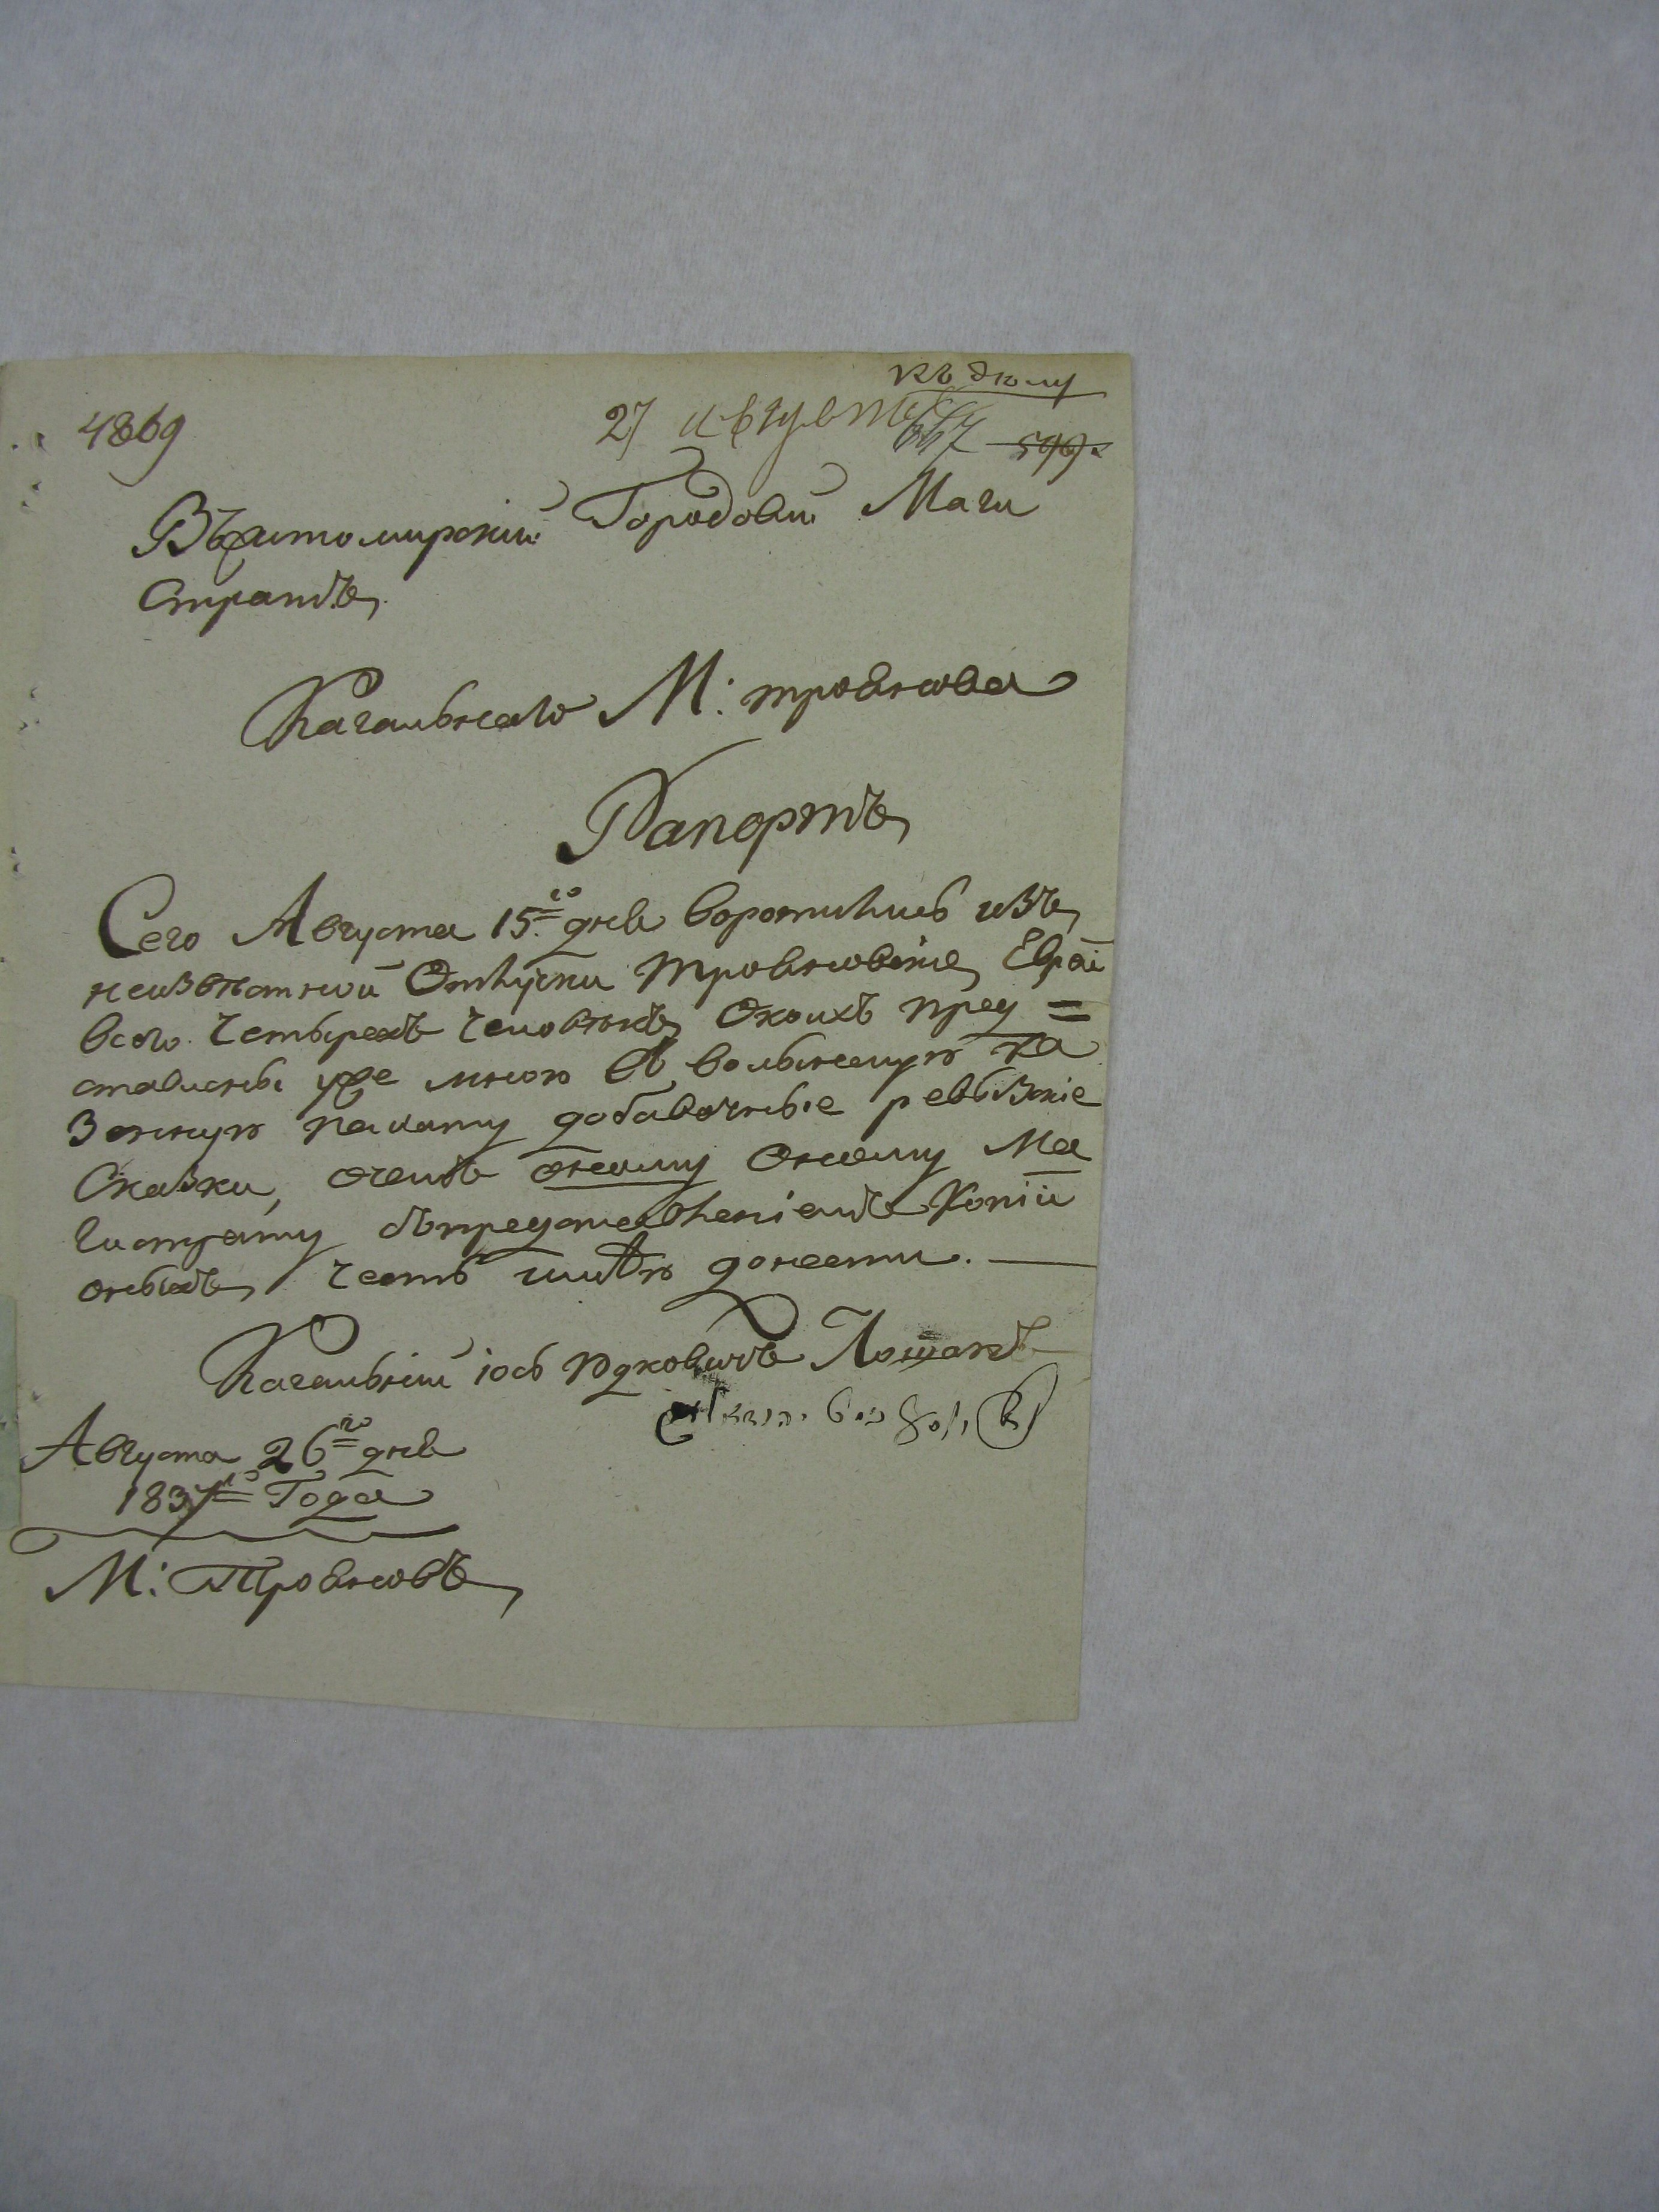 къ делу
4869
27 августа
667 599
Въ житомирскій Городовій Маги
стратъ
Кагальнаго М: троянова
Рапортъ
Сего Августа 15го дня воротились изъ
неизвѣстной Отлучки трояновскіе Евреи
всего четырехъ человѣкъ Окоихъ пред=
ставлены уже мною въ волынскую ка
зенную палату добавочные ревызкіе
Сказки, очемъ оному Оному Ма
гистрату съпредставленіемъ Копіи
оныхъ честь имѣю донести.
Кагальній іось юдковичъ Лошакъ
Августа 26го дня
1837го Года
М: Трояновъ